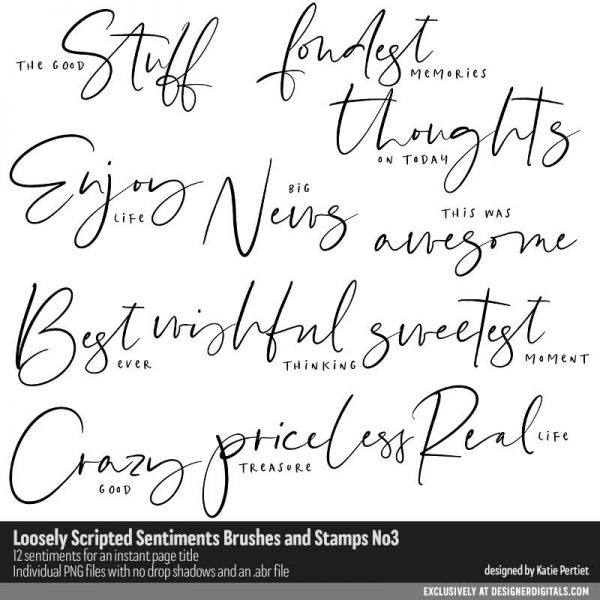 THE GOOD Stuff
fondest MEMORIES
thoughts ON TODAY
Enjoy LIFE
BIG News
THIS WAS awesome
Best EVER
wishful THINKING
sweetest MOMENT
Crazy GOOD
priceless TREASURE
Real LIFE
Loosely Scripted Sentiments Brushes and Stamps No3
12 sentiments for an instant page title
Individual PNG files with no drop shadows and an .abr file
designed by Katie Pertiet
EXCLUSIVELY AT DESIGNERDIGITALS.COM